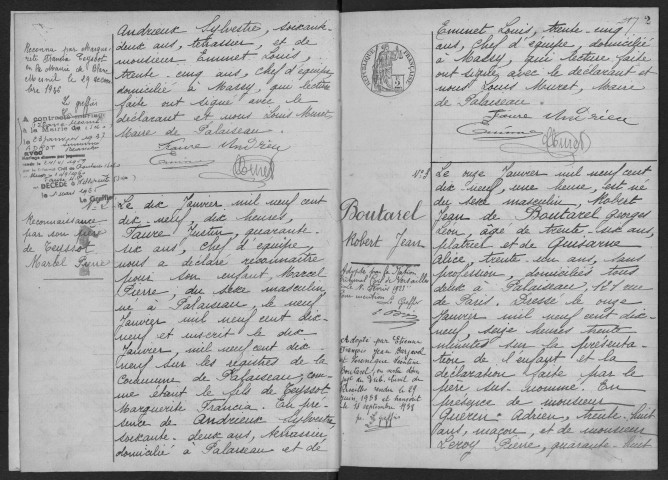 Andrieux Sylvestre, soixante-
deux ans, terrassier, et de
monsieur Emmet Louis,
trente-cinq ans, chef d'équipe,
domicilié à Massy, qui lecture
faite ont signé avec le
déclarant et nous Louis Muret
Maire de Palaiseau.
Faure Andrieu
Emmet
LMuret
Reconnu par Margue-
rite Francia Teyssot
en la Mairie de
Mesnil le 29
1946
Le greffier
A contracté mariage
à la Mairie de
le
DÉCÉDÉ à
le 1985
Le Greffier
N° 2
Reconnaissance
par son père
de Teyssot
Marcel Pierre
Le dix Janvier mil neuf cent
dix-neuf, dix heures,
Faure Justin, quarante-
six ans, chef d'équipe,
nous a déclaré reconnaître
pour son enfant, Marcel
Pierre, du sexe masculin,
né à Palaiseau, le neuf
Janvier mil neuf cent dix-
neuf et inscrit le dix
Janvier, mil neuf cent dix
neuf sur les registres de la
Commune de Palaiseau, com-
me étant le fils de Teyssot
Marguerite Francia. En pré-
sence de Andrieux Sylvestre
soixante-deux ans, terrassier
domicilié à Palaiseau et de
2
Emmet Louis, trente-cinq
ans, Chef d'équipe, domicilié
à Massy, qui lecture faite
ont signé avec le déclarant
et nous Louis Muret, Maire
de Palaiseau.
Faure Andrieu
Emmet
LMuret
RÉPUBLIQUE FRANÇAISE
N° 3
Boutarel
Robert Jean
Adopté par la Nation
Tribunal Civil de Versailles
le
Adopté par Etienne
François Jean Bergaud
et Véronique
Boutarel, en vertu d'un
jugt du Trib. Civil de
Versailles rendu le 29
juin 1938 et transcrit
le 14 septembre 1938
Le greffier
Le onze Janvier mil neuf cent
dix neuf, une heure, est né
du sexe masculin, Robert
Jean de Boutarel Georges
Léon, âgé de trente-six ans,
plâtrier et de Guisarne
Alice, trente-un ans, sans
profession, domiciliés tous
deux à Palaiseau, 121 rue
de Paris. Dressé le onze
Janvier, mil neuf cent dix-
neuf, seize heures trente
minutes sur la présenta-
tion de l'enfant et la
déclaration faite par le
père sus nommé. En
présence de monsieur
Guérin Adrien, trente-huit
ans, maçon, et de monsieur
Leroy Pierre, quarante-huit